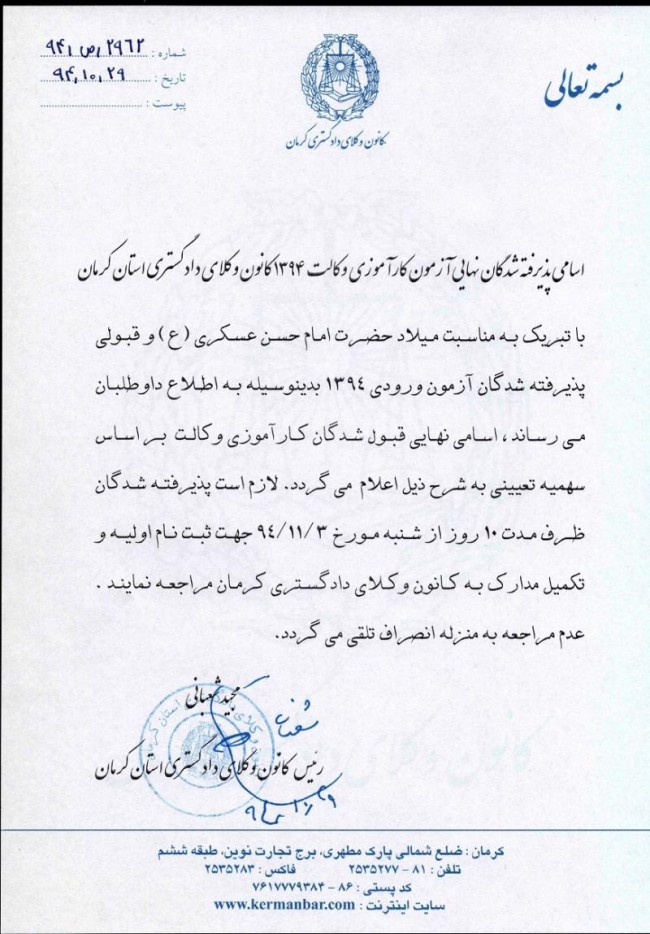 بسمه تعالی
کانون وکلای دادگستری کرمان
شماره : ۲۹۶۲/ص/۹۴
تاریخ : ۹۴,۱۰,۲۹
پیوست :
اسامی پذیرفته شدگان نهایی آزمون کارآموزی وکالت ۱۳۹۴ کانون وکلای دادگستری استان کرمان
با تبریک به مناسبت میلاد حضرت امام حسن عسکری (ع) و قبولی
پذیرفته شدگان آزمون ورودی ۱۳۹٤ بدینوسیله به اطلاع داوطلبان
می رساند ، اسامی نهایی قبول شدگان کارآموزی وکالت بر اساس
سهمیه تعیینی به شرح ذیل اعلام می گردد. لازم است پذیرفته شدگان
ظرف مدت ۱۰ روز از شنبه مورخ ۹٤/۱۱/۳ جهت ثبت نام اولیه و
تکمیل مدارک به کانون وکلای دادگستری کرمان مراجعه نمایند .
عدم مراجعه به منزله انصراف تلقی می گردد.
مجید شعبانی
رئیس کانون وکلای دادگستری استان کرمان
کرمان : ضلع شمالی پارک مطهری، برج تجارت نوین، طبقه ششم
تلفن : ۸۱ - ۲۵۳۵۲۷۷ فاکس : ۲۵۳۵۲۸۳
کد پستی : ۸۶ - ۷۶۱۷۷۷۹۳۸۴
سایت اینترنت : www.kermanbar.com